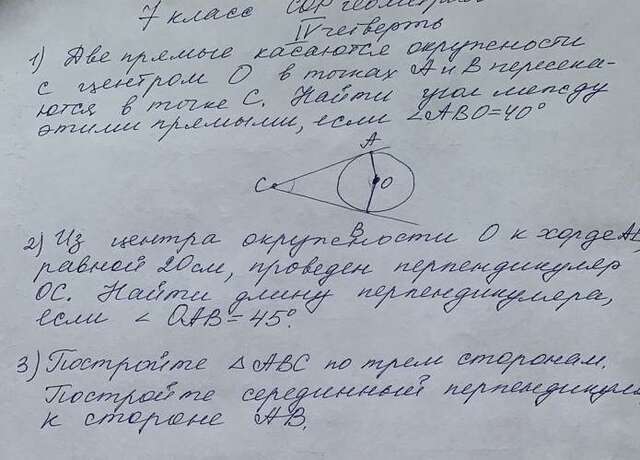 7 класс СОР геометрия
IV четверть
1) Две прямые касаются окружности
с центром О в точках А и В пересека-
ются в точке С. Найти угол между
этими прямыми, если ∠ABO=40°
A
C
O
B
2) Из центра окружности О к хорде АВ,
равной 20см, проведен перпендикуляр
ОС. Найти длину перпендикуляра,
если ∠ОАВ=45°.
3) Постройте △ABC по трем сторонам.
Постройте серединный перпендикуля
к стороне АВ.